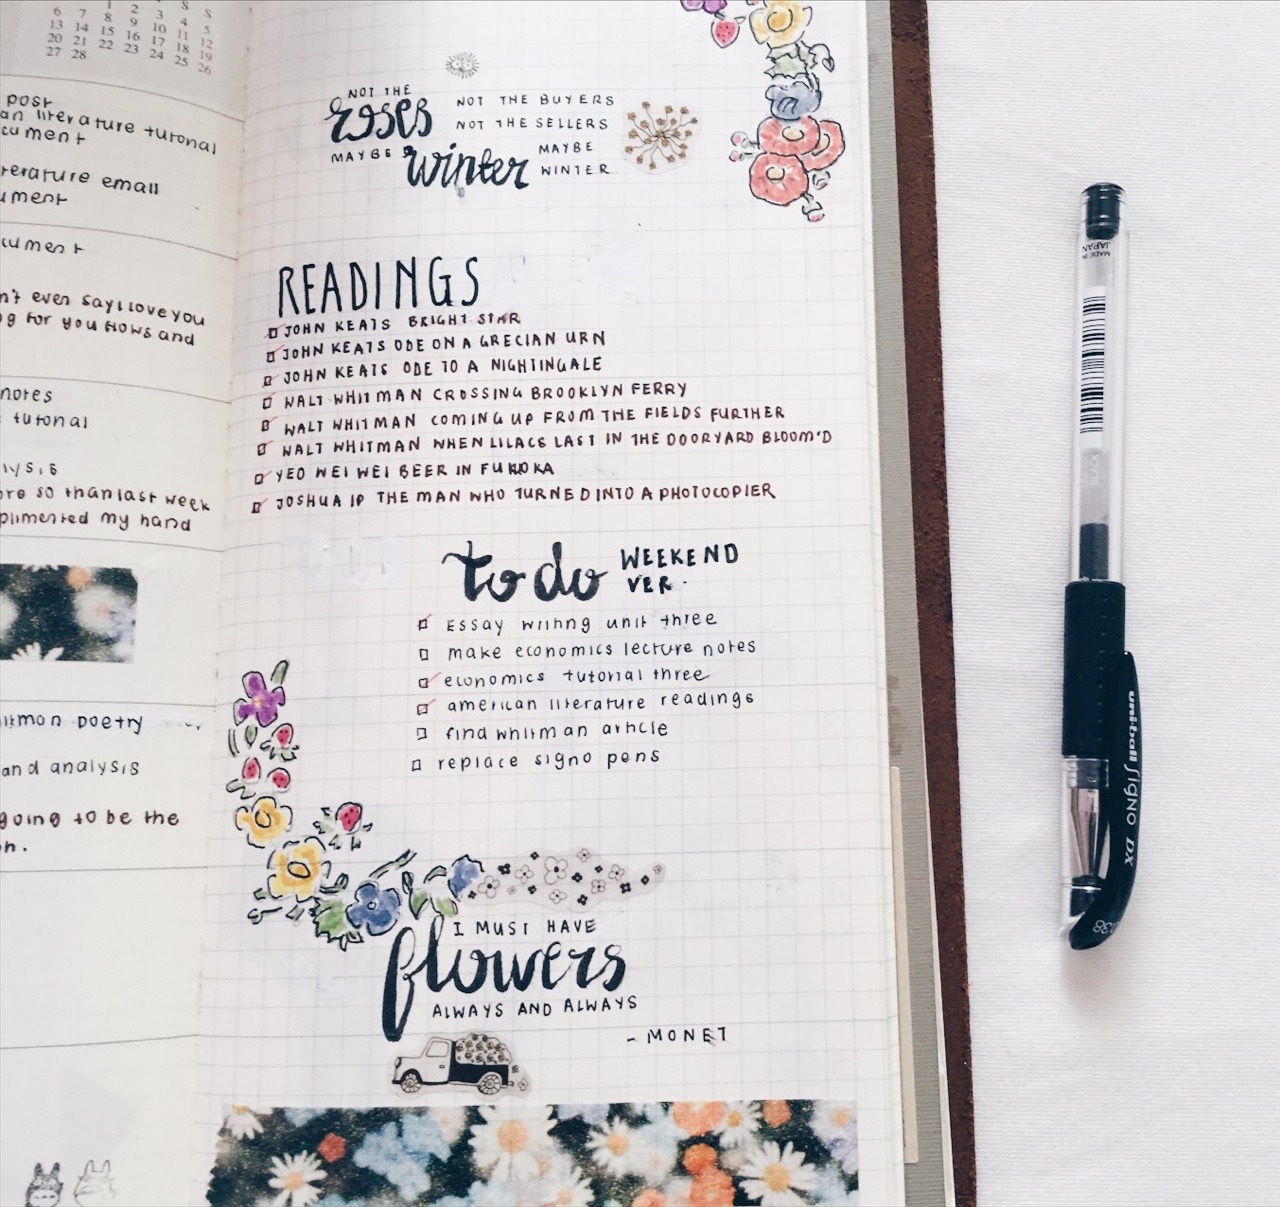 S S
1 2 3 4 5
6 7 8 9 10 11 12
13 14 15 16 17 18 19
20 21 22 23 24 25 26
27 28
post
an literature tutorial
cument
terature email
ument
cument
n't even say i love you
g for you hows and
notes
tutorial
lysis
ore so than last week
plimented my hand
itman poetry
and analysis
going to be the
n.
NOT THE
roses
MAYBE
winter
NOT THE BUYERS
NOT THE SELLERS
MAYBE
WINTER
READINGS
JOHN KEATS BRIGHT STAR
JOHN KEATS ODE ON A GRECIAN URN
JOHN KEATS ODE TO A NIGHTINGALE
WALT WHITMAN CROSSING BROOKLYN FERRY
WALT WHITMAN COMING UP FROM THE FIELDS FURTHER
WALT WHITMAN WHEN LILACS LAST IN THE DOORYARD BLOOM'D
YEO WEI WEI BEER IN FUKUOKA
JOSHUA IP THE MAN WHO TURNED INTO A PHOTOCOPIER
to do WEEKEND
VER.
essay writing unit three
make economics lecture notes
economics tutorial three
american literature readings
find whitman article
replace signo pens
I MUST HAVE
flowers
ALWAYS AND ALWAYS
- MONET
MADE IN
JAPAN
uni-ball Signo DX
0.38